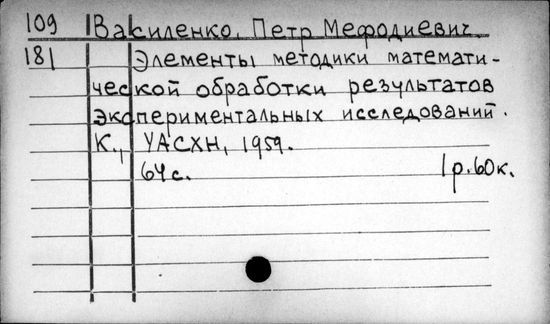 109 Василенко, Петр Мефодиевич.
181 Элементы методики математи-
ческой обработки результатов
экспериментальных исследований.
К., УАСХН, 1959.
64 с. 1 р. 60 к.